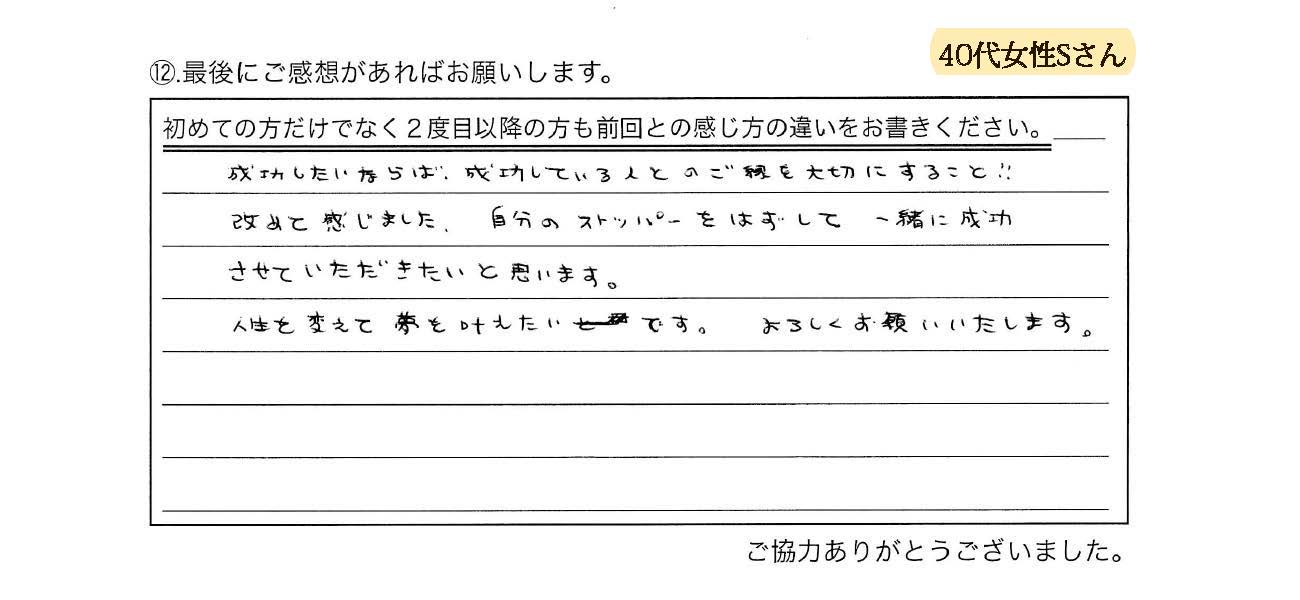 40代女性Sさん
⑫.最後にご感想があればお願いします。
初めての方だけでなく２度目以降の方も前回との感じ方の違いをお書きください。
成功したいならば、成功している人とのご縁を大切にすること!!
改めて感じました、自分のストッパーをはずして 一緒に成功
させていただきたいと思います。
人生を変えて夢を叶えたいです。 よろしくお願いいたします。
ご協力ありがとうございました。